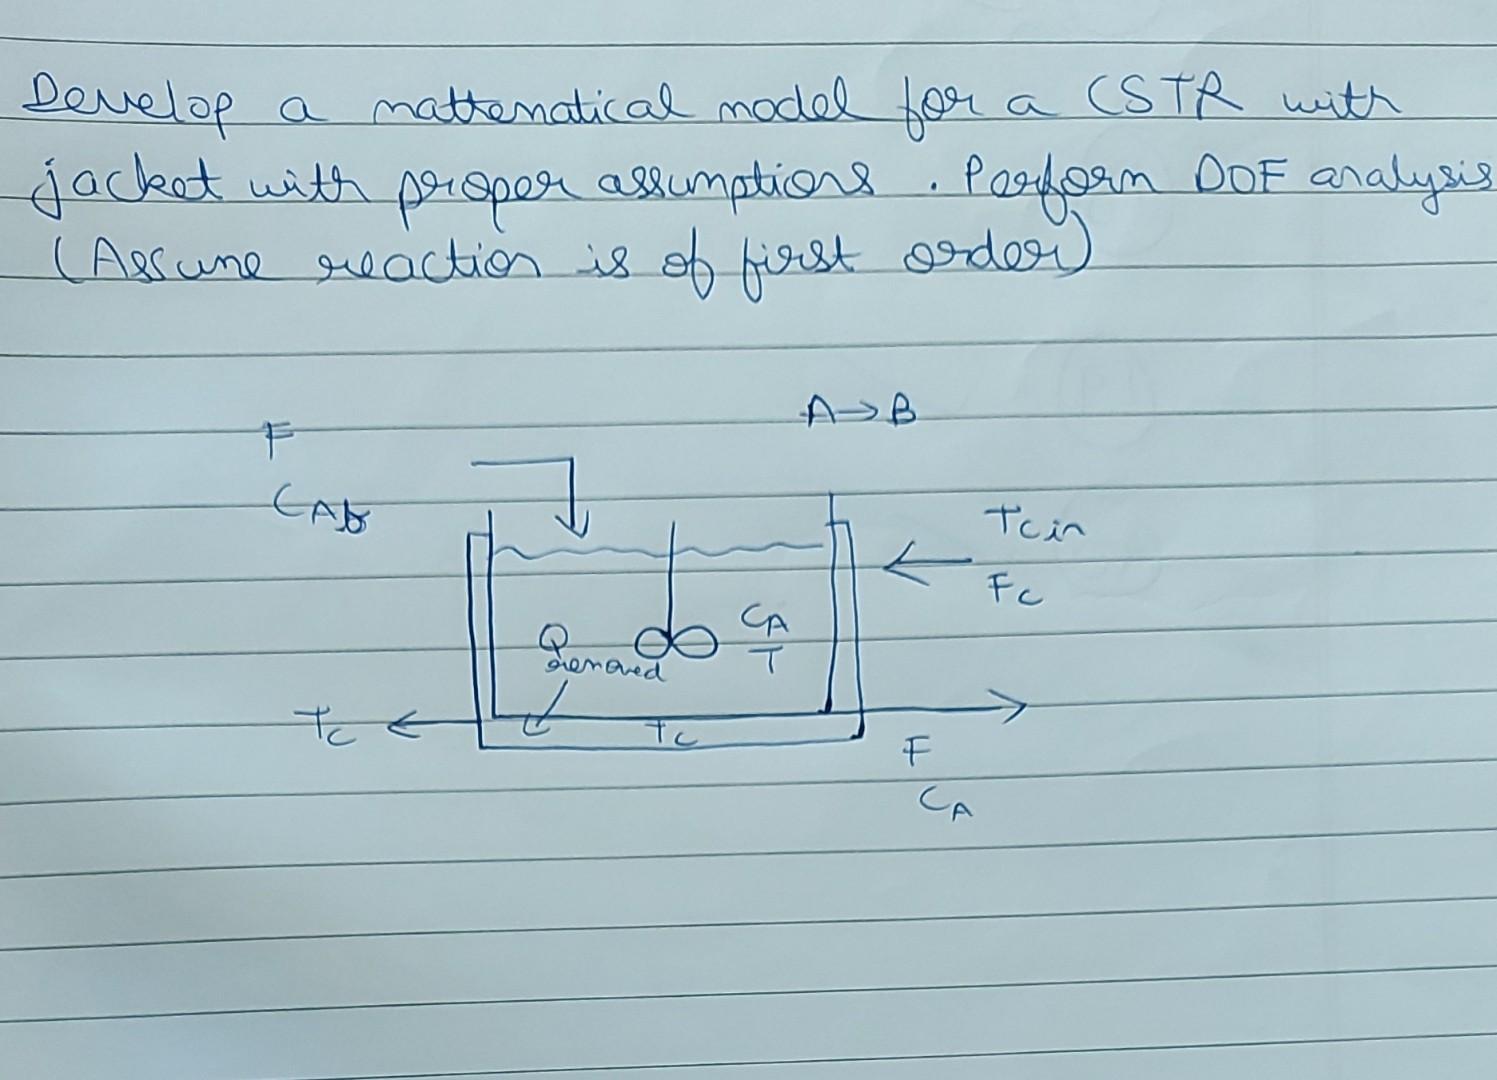 Develop a mathematical model for a CSTR with
jacket with proper assumptions. Perform DOF analysis
(Assume reaction is of first order)
A→B
F
CAf
Tcin
Fc
CA
T
Qremoved
Tc
Tc
F
CA